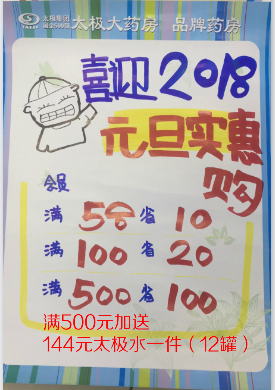 太极集团
太极大药房 品牌药房
喜迎2018
元旦实惠
购
会员
满 58 省 10
满 100 省 20
满 500 省 100
满500元加送
144元太极水一件（12罐）